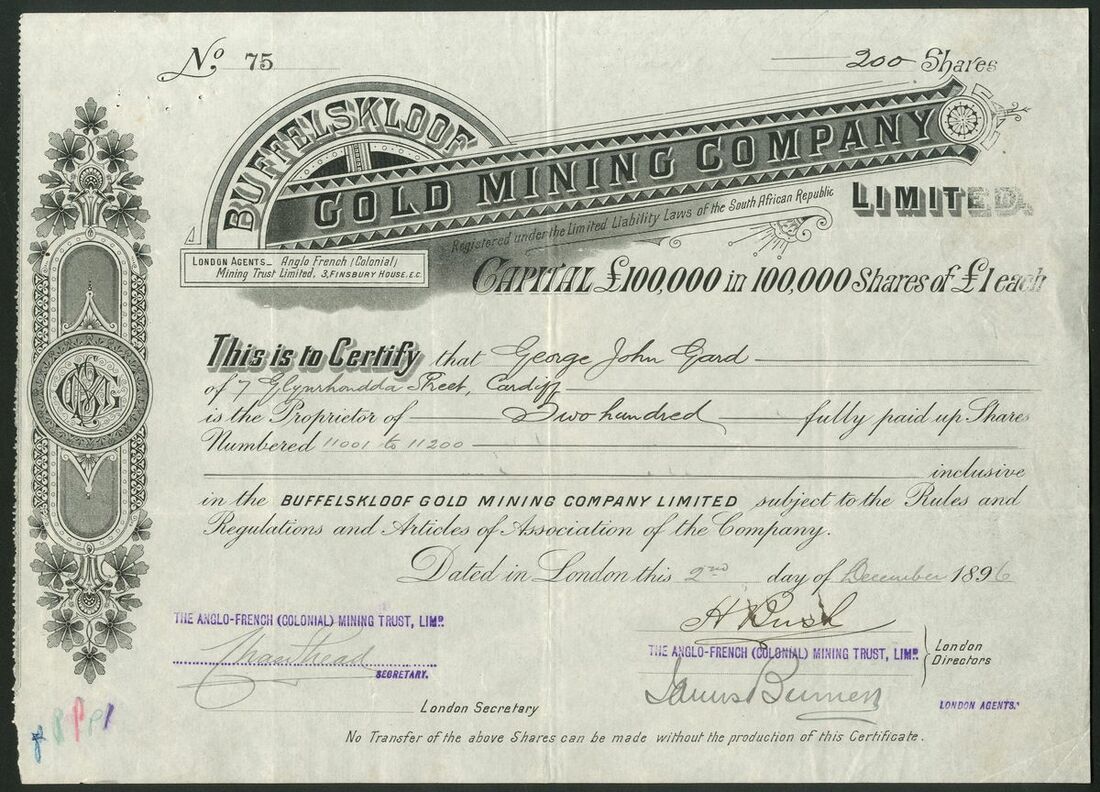 No 75
200 Shares
BUFFELSKLOOF
GOLD MINING COMPANY
LIMITED.
Registered under the Limited Liability Laws of the South African Republic
LONDON AGENTS_ Anglo French (Colonial)
Mining Trust Limited. 3, FINSBURY HOUSE, E.C.
CAPITAL £100,000 in 100,000 Shares of £1 each
This is to Certify that George John Gard
of 7 Glynrhondda Street, Cardiff
is the Proprietor of Two hundred fully paid up Shares
Numbered 11001 to 11200
inclusive
in the BUFFELSKLOOF GOLD MINING COMPANY LIMITED subject to the Rules and
Regulations and Articles of Association of the Company.
Dated in London this 2nd day of December 1896
THE ANGLO-FRENCH (COLONIAL) MINING TRUST, LIMD.
SECRETARY.
London Secretary
H Bush
THE ANGLO-FRENCH (COLONIAL) MINING TRUST, LIMD.
London
Directors
James
LONDON AGENTS.
No Transfer of the above Shares can be made without the production of this Certificate.